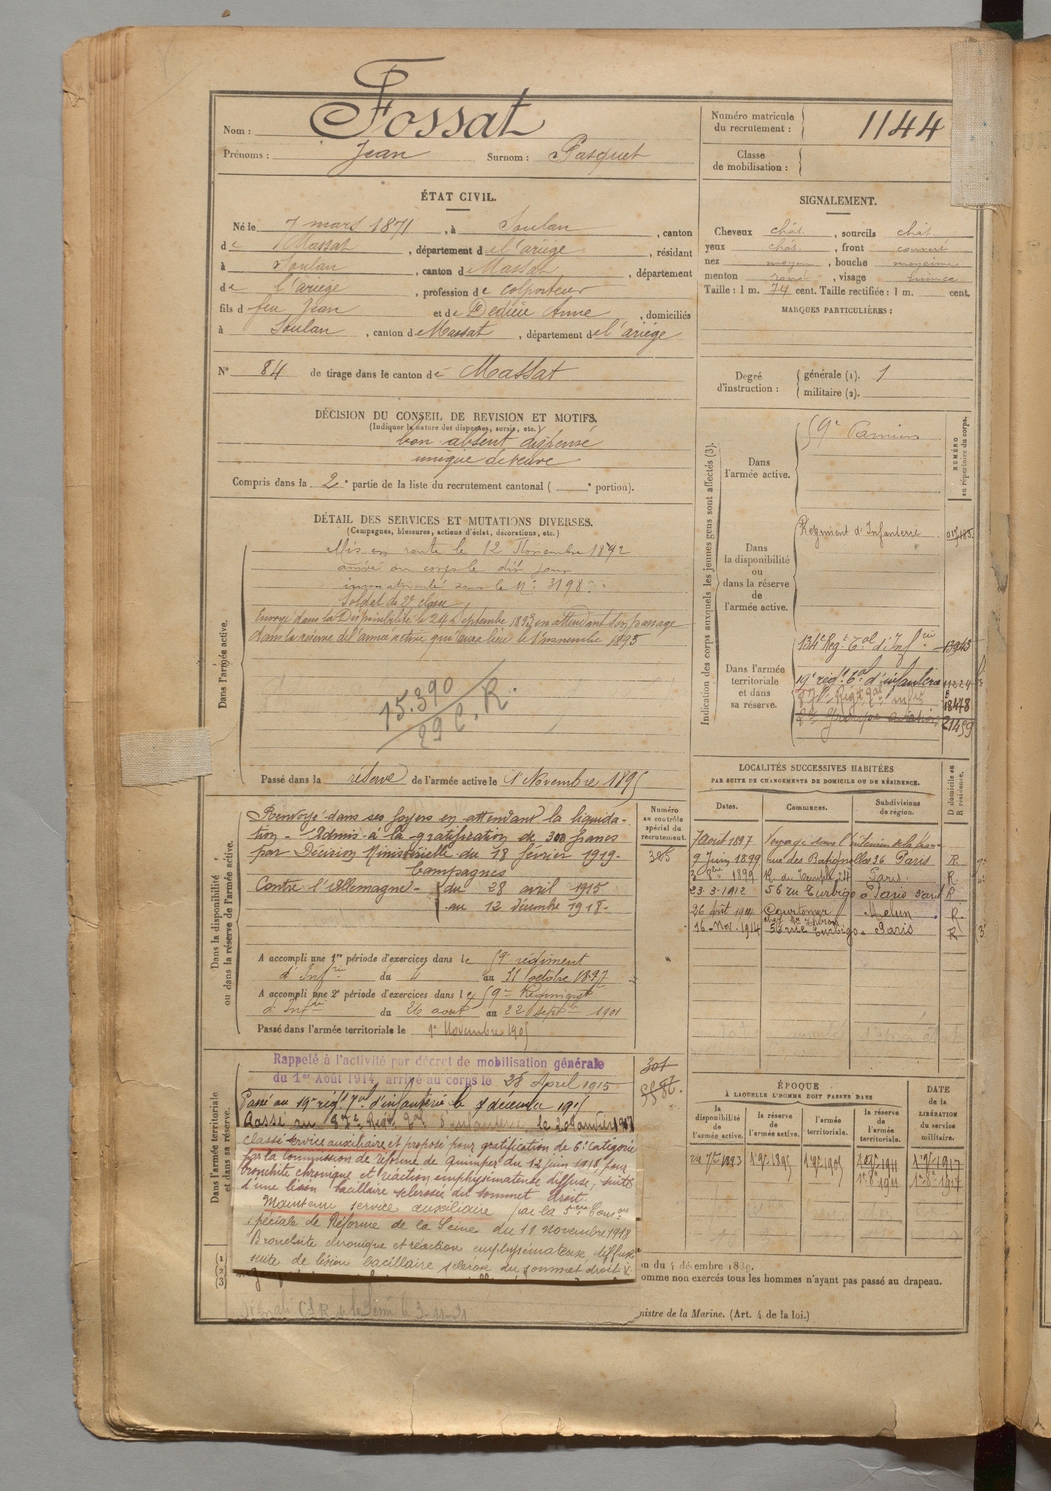 Nom : Fossat
Prénoms : Jean Surnom : Pasquet
Numéro matricule du recrutement : 1144
Classe de mobilisation :
ÉTAT CIVIL.
Né le 7 mars 1871, à Soulan, canton
de Massat, département de l'ariège, résidant
à Soulan, canton de Massat, département
de l'ariège, profession de colporteur
fils de feu Jean et de Dedieu Anne, domiciliés
à Soulan, canton de Massat, département de l'ariège
N° 84 de tirage dans le canton de Massat
SIGNALEMENT.
Cheveux chât., sourcils chât.
yeux chât., front couvert
nez moyen, bouche moyenne
menton rond, visage
Taille : 1 m. 74 cent. Taille rectifiée : 1 m. cent.
MARQUES PARTICULIÈRES :
Degré d'instruction : générale (1). 1
militaire (2).
DÉCISION DU CONSEIL DE REVISION ET MOTIFS.
(Indiquer la nature des dispenses, sursis, etc.)
bon absent dispensé
unique de veuve
Compris dans la 2e partie de la liste du recrutement cantonal ( e portion).
DÉTAIL DES SERVICES ET MUTATIONS DIVERSES.
(Campagnes, blessures, actions d'éclat, décorations, etc.)
Dans l'armée active.
Mis en route le 12 Novembre 1892
arrivé au corps le dit jour
immatriculé sous le N° 3198
Soldat de 2e classe
Envoyé dans la Disponibilité le 24 Septembre 1893 en attendant son passage
dans la réserve de l'armée active qui aura lieu le 1er novembre 1895
15.390
29 C. R.
Passé dans la réserve de l'armée active le 1er Novembre 1895
Indication des corps auxquels les jeunes gens sont affectés (3).
NUMÉRO au répertoire du corps.
Dans l'armée active.
59e Pamiers
Dans la disponibilité ou dans la réserve de l'armée active.
Régiment d'Infanterie
Dans l'armée territoriale et dans sa réserve.
134e Reg.t T.al d'Inf.rie 13943
19e rég.t T.al d'infanterie 11224
18478
21459
Dans la disponibilité ou dans la réserve de l'armée active.
Numéro au contrôle spécial du recrutement.
385
Renvoyé dans ses foyers en attendant la liquida-
tion - Admis à la gratification de 300 francs
par Décision Ministérielle du 18 février 1919.
Campagnes
Contre l'Allemagne - du 28 avril 1915
au 12 décembre 1918.
A accompli une 1re période d'exercices dans le 59e régiment
d'Inf.rie du 4 au 31 octobre 1897
A accompli une 2e période d'exercices dans le 59e Régiment
d'Inf.rie du 26 août au 22 sept.bre 1901
Passé dans l'armée territoriale le 1er Novembre 1905
LOCALITÉS SUCCESSIVES HABITÉES
PAR SUITE DE CHANGEMENTS DE DOMICILE OU DE RÉSIDENCE.
Dates. Communes. Subdivisions de région. D domicile ou R résidence.
7 août 1897 Voyage dans l'intérieur de la
9 Juin 1899 rue des Batignolles 26 Paris R
1899 R. du Temple 24 Paris. R
23.3.1912 56 ru Turbigo Paris R
26 août 1914 Courtomer Melun R
16 Nov. 1914 56 rue Turbigo Paris R
Dans l'armée territoriale et dans sa réserve.
Rappelé à l'activité par décret de mobilisation générale
du 1er Août 1914, arrivé au corps le 28 April 1915
Passé au 19e rég.t T.al d'infanterie le 7 décembre 1915
Passé au 87e Rég. T.al d'infanterie, le 20 Janvier 1917
Classé service auxiliaire et proposé pour gratification de 6e Catégorie
par la Commission de réforme de Quimper du 12 juin 1918 pour
bronchite chronique et réaction emphysémateuse diffuse, suite
d'une lésion bacillaire sclérosée du sommet droit.
Maintenu service auxiliaire par la 5ème Comon
spéciale de Réforme de la Seine du 11 novembre 1918
Bronchite chronique et réaction emphysémateuse diffuse
suite de lésion bacillaire sclérose du sommet droit
C.S.R. de la Seine le 3-11-31
301
ÉPOQUE
À LAQUELLE L'HOMME DOIT PASSER DANS
la disponibilité de l'armée active. la réserve de l'armée active. l'armée territoriale. la réserve de l'armée territoriale.
DATE de la LIBÉRATION du service militaire.
24 7bre 1893 1er 9bre 1895 1er 9bre 1905
(1) (2) (3)
on du 4 décembre 1889.
omme non exercés tous les hommes n'ayant pas passé au drapeau.
nistre de la Marine. (Art. 4 de la loi.)